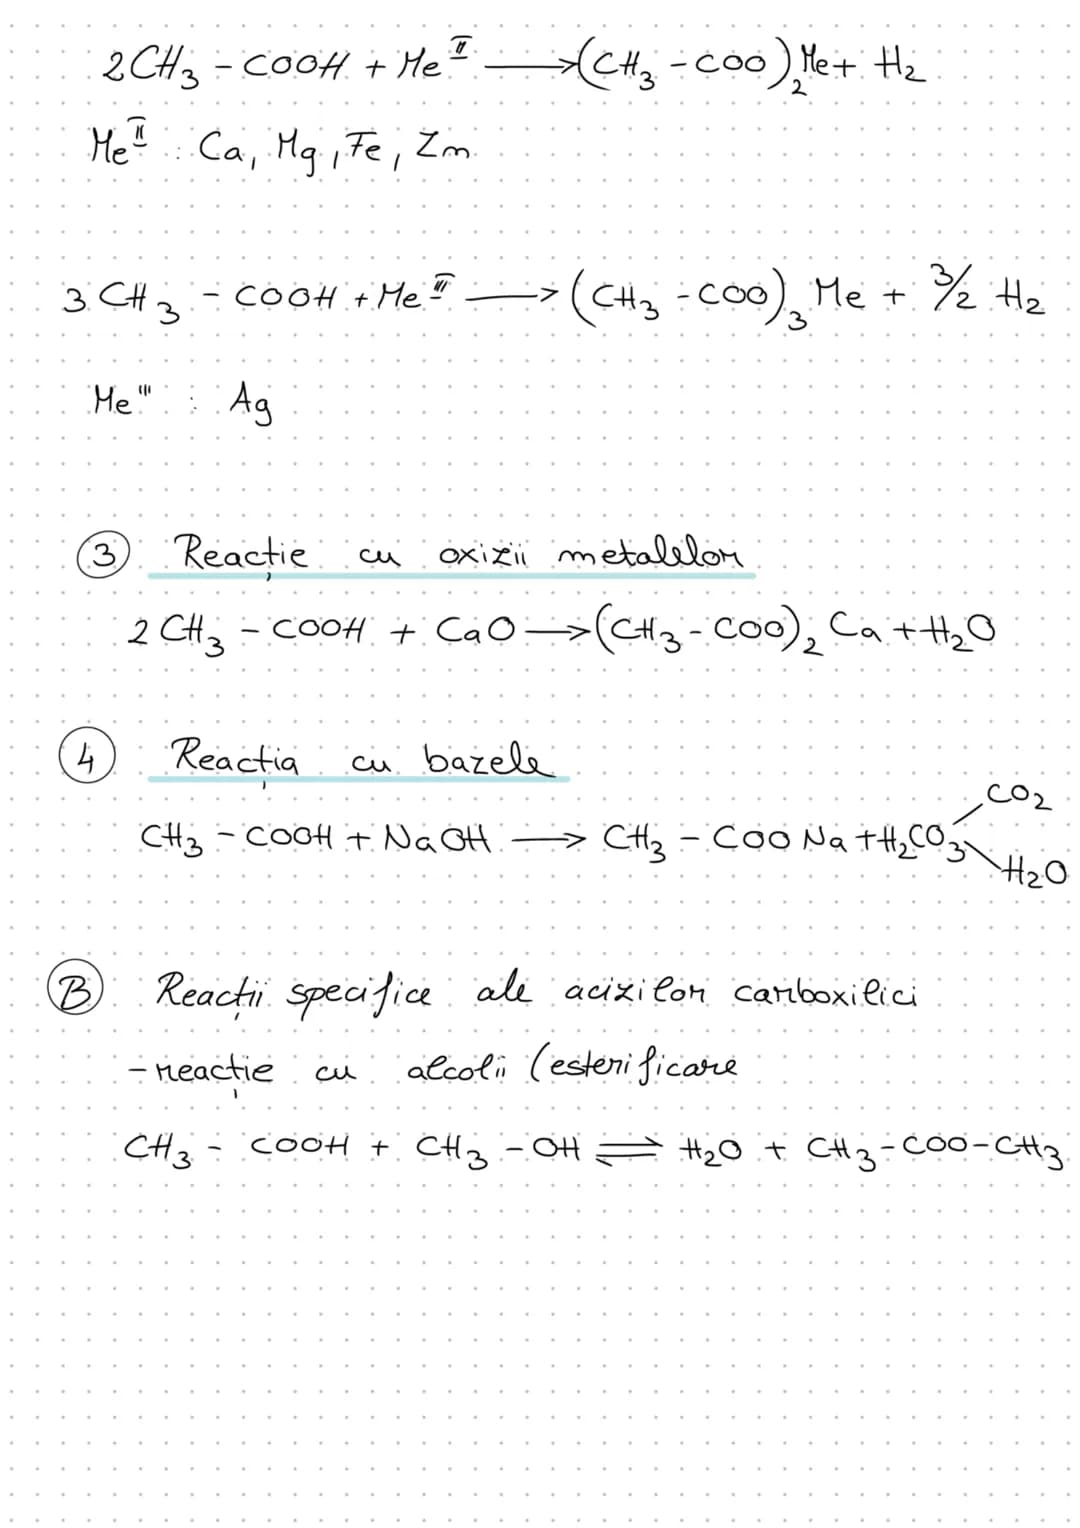 2CH₃ - COOH + Me^II ⟶ (CH₃ - COO)₂Me + H₂
Me^II : Ca, Mg, Fe, Zn
3 CH₃ - COOH + Me^III ⟶ (CH₃ - COO)₃ Me + 3/2 H₂
Me''' : Ag
③ Reacție cu oxizii metalelor
2 CH₃ - COOH + CaO ⟶ (CH₃ - COO)₂ Ca + H₂O
④ Reacția cu bazele
CH₃ - COOH + NaOH ⟶ CH₃ - COO Na + H₂CO₃ CO₂
H₂O
Ⓑ Reacții specifice ale acizilor carboxilici
- reacție cu alcolii (esterificare
CH₃ - COOH + CH₃ - OH ⇌ H₂O + CH₃ - COO - CH₃